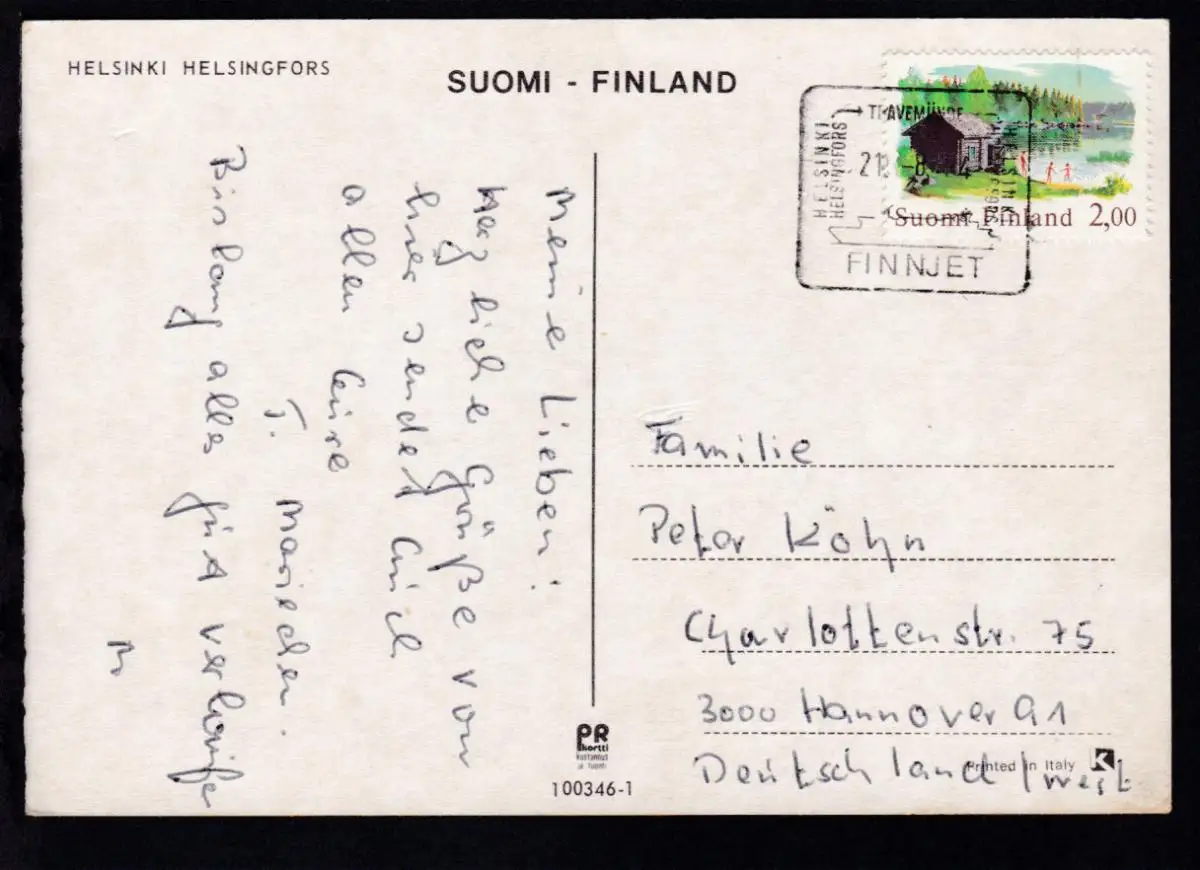 HELSINKI HELSINGFORS
SUOMI - FINLAND
TRAVEMÜNDE
HELSINKI
HELSINGFORS
21. -8.
FINNJET
Suomi Finland 2,00
Meine Lieben!
Herzliche Grüße von
hier sendet Euch
allen Eure
T. Mariechen.
Bislang alles gut
Familie
Peter Köhn
Charlottenstr. 75
3000 Hannover 91
Deutschland / West
PR
kortti
kustannus
ja tuonti
100346-1
Printed in Italy
K